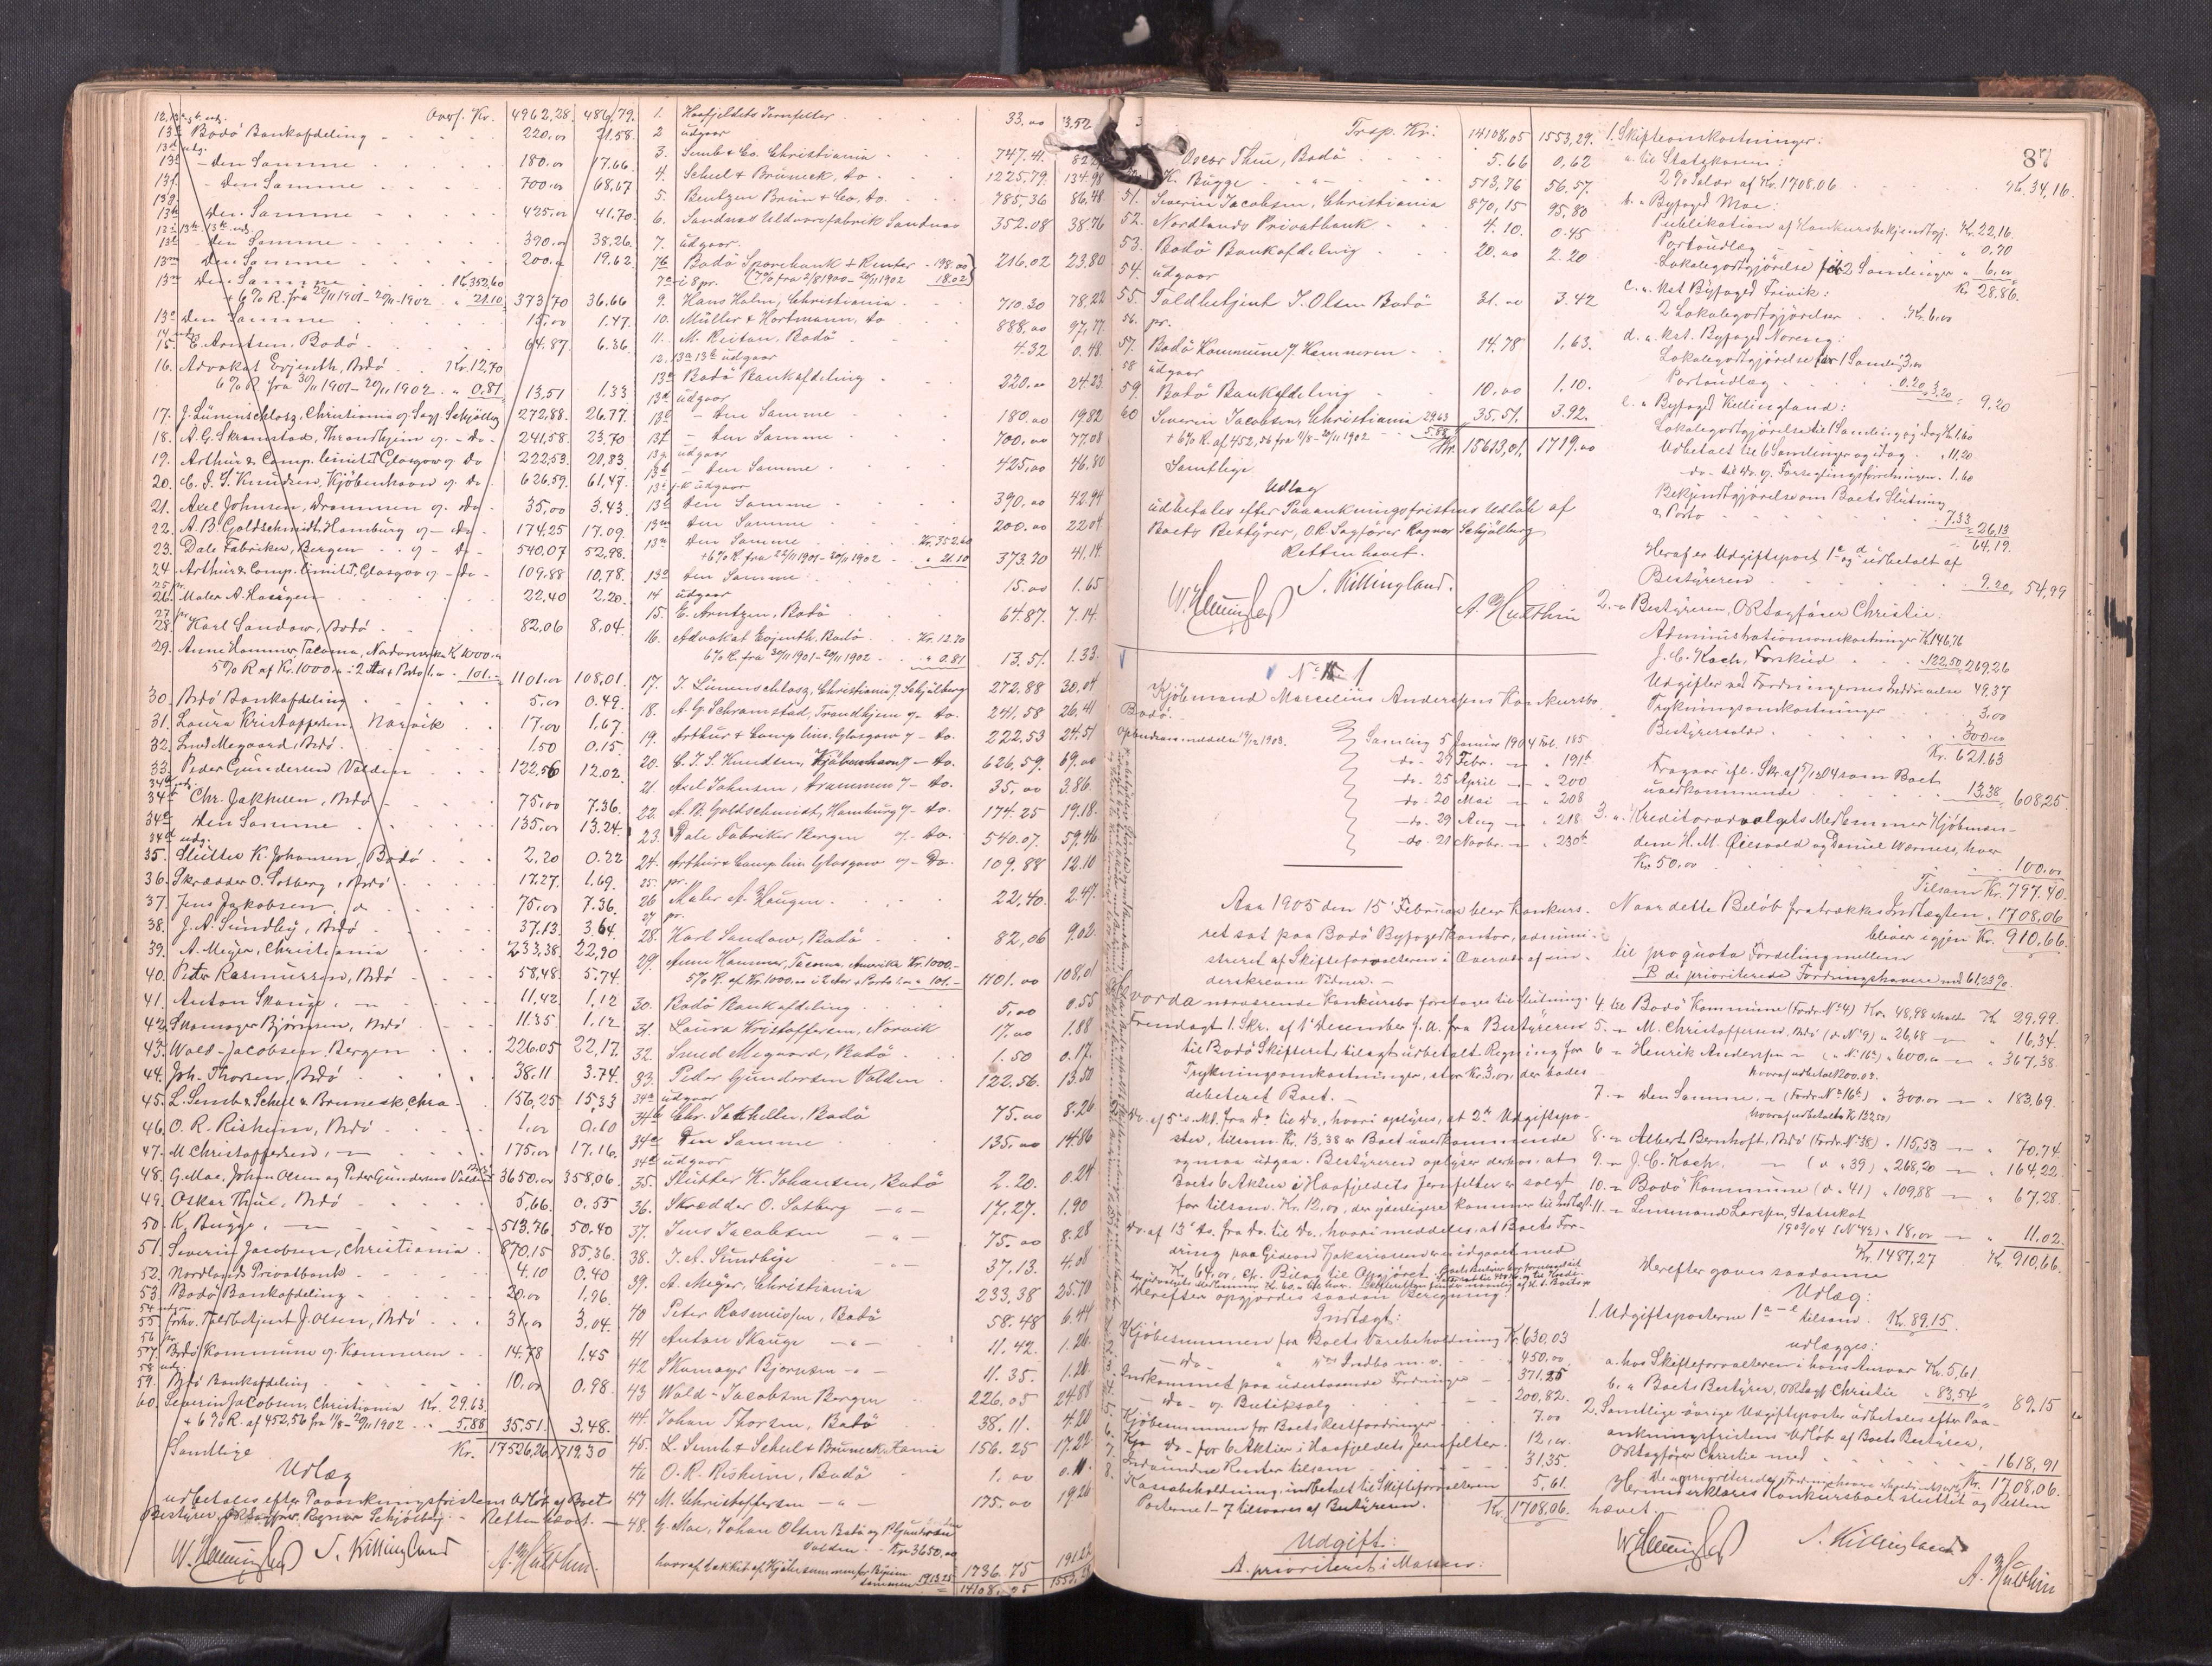 Overf. Kr. 4962,28. 486,79.
13c Bodö Bankafdeling 220.00 21.58.
13e - den Samme 180.00 17.66.
13f - den Samme 700.00 68,67
13h den Samme 425.00 41.70.
13l - den Samme 390.00 38.26.
13m den Samme 200.00 19.62.
13n den Samme K 352,60
+ 6% R. fra 22/11 1901 - 20/11 - 1902 " 21.10 373,70 36.66
13o den Samme 15,00 1.47.
15. E. Arntsen, Bodö 64.87. 6.36.
16. Advokat Evjenth, Bodö Kr. 12,70
6% R. fra 30/11 1901 - 20/11 1902 " 0,81 13,51 1.33
17. J. Lünenschlosz, Christiania v/ Sagf. Schjölberg 272,88. 26.77.
18. A. G. Skramstad, Throndhjem v/ - do - 241,58. 23,70
19. Arthur & Comp. limited Glasgow v/ do 222,53. 21,83.
20. C. I. S. Knudsen, Kjöbenhavn v/ do - 626,59. 61,47.
21. Axel Johnsen, Drammen v/ do 35,00 3.43.
22. A. B. Goldschmidt, Hamburg v/ - do - 174,25 17,09.
23. Dale Fabriker, Bergen v/ - do - 540,07 52,98.
24. Arthur & Comp. limited, Glasgow v/ - do - 109.88 10,78.
25 pr.
26. Maler A. Haugen 22,40 2,20.
27 pr.
28. Karl Sandow, Bodö 82,06 8,04.
29. Anne Hammer, Tacoma, Nordamerika K 1000.00
5% R. af Kr. 1000.00 i 2 Aar + Porto 1.00 101.- 1101.00 108,01.
30. Bodö Bankafdeling 5.00 0.49.
31. Laura Kristoffersen, Narvik 17.00 1.67.
32. Smed Megaard, Bodö 1.50 0.15.
33. Peder Gundersen Valden 122,56 12.02.
34b Chr. Jakhelln, Bodö 75,00 7.36.
34c den Samme 135,00 13.24.
34d udg.
35. Skütter K. Johansen, Bodö 2,20 0.22
36. Skrædder O. Solberg, Bodö 17.27. 1,69.
37. Jens Jakobsen 75,00 7.36.
38. J. A. Sundby, Bodö 37.13. 3,64.
39. A. Meyer, Christiania 233,38. 22,90
40. Peter Rasmussen, Bodö 58,48. 5.74.
41. Anton Skauge, - " - 11,42. 1,12
42. Skomager Bjørnsen, Bodö 11.35 1,12
43. Wald-Jacobsen, Bergen 226.05 22,17.
44. Joh. Thorsen, Bodö 38.11 3.74.
45. L. Semb & Schul & Bruneck, Chra. 156,25 15,33
46. O. R. Risheim, Bodö 1,00 0.10
47. M. Christoffersen, - " - 175,00 17,16.
48. G. Moe, Johan Olsen og Peder Gundersens Valden 3650,00 358,06.
49. Oskar Thue, Bodö 5,66. 0.55
50. K. Bugge, - " - 513.76. 50,40
51. Severin Jacobsen, Christiania 870,15 85,36.
52. Nordlands Privatbank 4.10 0.40
53. Bodö Bankafdeling 20,00 1,96.
54 udgaar
55. forhv. Toldbetjent J. Olsen, Bodö 31,00 3,04.
56 pr.
57. Bodö Kommune v/ Kæmneren 14,78 1,45
58 udg.
59. Bodö Bankafdeling 10,00 0,98.
60. Severin Jacobsen, Christiania Kr. 29.63
+ 6% R. af 452,56 fra 1/8 - 20/11 1902 " 5,88 35,51. 3,48.
Samtlige Kr. 17526,26 1719,30
Udlæg
udbetales efter Paaankningsfristens Udlöb af Boets
Bestyrer, OR.Sagfører Ragnar Schjölberg. - Retten hævet. -
W. Hemmingsen S. Killingland A. Hulthin.
1. Haafjeldets Jernfelter 33.00 3.52
2 udgaar
3. Semb & Co. Christiania 747.41.
4. Schul & Bruneck, do 1225,79. 134.98
5. Bentzen Bruun & Co, do. 785,36 86,48.
6. Sandnes Uldvarefabrik Sandnes 352.08 38.76
7. udgaar.
7b Bodö Sparebank + Renter 198.00 216.02 23.80
(7% fra 2/8 1900 - 20/11 1902 18.02)
9. Hans Holm, Christiania 710.30 78,22
10. Müller & Hartmann, do 888,00 97,77.
11. M. Reitan, Bodö 4.32 0.48.
12. 13a 13b udgaar
13c Bodö Bankafdeling 220.00 24.23.
13d udgaar
13e - den Samme 180.00 19.82
13f - den Samme 700,00 77,08
13g udgaar
13h - den Samme 425,00 46.80
13i j-k udgaar
13l den Samme 390,00 42.94
13m den Samme 200.00 22.04
13n den Samme Kr. 352.60
+ 6% R. fra 22/11 1901 - 20/11 1902 " 21.10 373.70 41.14
13o den Samme 15.00 1.65
14 udgaar
15. E. Arntzen, Bodö 64.87. 7.14.
16. Advokat Evjenth, Bodö Kr. 12.70
6% R. fra 30/11 1901 - 20/11 1902 " 0.81 13.51. 1.33.
17. J. Lünenschlosz, Christiania v/ Schjölberg 272,88 30,04
18. A. G. Schramstad, Trondhjem v/ - do. 241,58 26.41
19. Arthur & Comp lim. Glasgow v/ - do. 222.53 24.51
20. C. I. S. Knudsen, Kjöbenhavn v/ - do. 626,59. 69,00
21. Axel Johnsen, Drammen v/ - do. 35,00 3.86.
22. A. B. Goldschmidt, Hamburg v/ - do. 174.25 19.18.
23. Dale Fabriker Bergen v/ - do. 540.07. 59,46
24. Arthur & Comp lim Glasgow v/ - Do. 109.88 12.10
25. pr.
26 Maler A. Haugen 22,40. 2.47.
27 pr.
28. Karl Sandow, Bodö 82,06 9.02.
29. Anne Hammer, Tacoma, Amerika Kr. 1000.-
5% R. af Kr. 1000.00 i 2 Aar + Porto 1.00 101.- 1101.00 108,01
30. Bodö Bankafdeling 5,00 0.55
31. Laura Kristoffersen, Narvik 17.00 1.88
32. Smed Megaard, Bodö 1.50 0.17.
33. Peder Gundersen Valden 122.56. 13.50
34a udgaar
34b Chr. Jakhelln, Bodö 75.00 8.26
34c Den Samme 135.00 14.86
34d udgaar
35. Skütter K. Johansen, Bodö 2.20. 0.24
36. Skrædder O. Solberg - " - 17.27. 1.90
37. Jens Jacobsen - " - 75.00 8.28
38. J. A. Sundbye - " - 37.13. 4.08
39. A. Meyer, Christiania 233,38 25.70
40 Peter Rasmussen, Bodö 58.48 6.44
41 Anton Skauge - " - 11.42. 1.26.
42 Skomager Bjørnsen - " 11.35. 1.26.
43 Wald-Jacobsen Bergen 226.05 24.88
44. Johan Thorsen, Bodö 38.11. 4.20
45. L. Semb & Schul & Bruneck, Xania 156.25 17.22
46 O. R. Risheim, Bodö 1.00 0.11
47 M. Christoffersen - " - 175.00 19.26
48. G. Moe, Johan Olsen Bodö og P. Gundersen
Valden Kr. 3650,00
1913.25 1736.75 191.22
14108,05 1553,29
87
Trsp. Kr. 14108,05 1553,29.
Oscar Thue, Bodö 5.66 0,62
K. Bugge - " - 513,76 56.57.
51. Severin Jacobsen, Christiania 870,15 95,80
52. Nordlands Privatbank 4.10. 0.45
53. Bodö Bankafdeling 20.00 2.20
54. udgaar
55. Toldbetjent J. Olsen Bodö 31.00 3.42
56. pr.
57. Bodö Kommune v/ Kæmneren 14.78 1.63.
58 udgaar
59. Bodö Bankafdeling 10,00 1.10.
60 Severin Jacobsen, Christiania 29.63 35.51. 3.92.
+ 6% R. af 452,56 fra 1/8 - 20/11 1902 5.88
Samtlige Kr. 15613,01. 1719.00
Udlæg
udbetales efter Paaankningsfristens Udlöb af
Boets Bestyrer, O.R. Sagfører Ragnar Schjölberg
Retten hævet.
W. Hemmingsen S. Killingland. A. Hulthin
No 1
Kjöbmand Marcelius Anderssens Konkursbo,
Bodö.
Samling 5 Januar 1904 Fol. 185
- do - 29 Febr. - " - " 191b
- do - 25 April - " - " 200
- do - 20 Mai - " - " 208
- do - 29 Aug - " - " 218.
- do - 21 Novbr. - " - " 230b
Aar 1905 den 15 Februar blev Konkurs-
ret sat paa Bodö Byfogedkontor, admini-
streret af Skifteforvalteren i Overvær af un-
derskrevne Vidner. -
hvorda nærværende Konkursbo foretages til Slutning.
Fremlagt 1. Skr. af 1 Desember f. A. fra Bestyreren
til Bodö Skifteret vedlagt udbetalt Regning for
Trykningsomkostninger, stor Kr. 3,00, der bedes
debiteret Boet. -
Do. af 5 s. Md. fra Do til Do., hvori oplyses, at 2de Udgiftspo-
ster, tilsam. Kr. 13,38 er Boet uvedkommende
og maa udgaa. Bestyreren oplyser derhos, at
Boets 6 Aktier i Haafjeldets Jernfelter er solgt
for tilsam. Kr. 12,00, der yderligere kommer til Indtægt.
Do. af 13 ds. fra Do. til Do., hvori meddeles, at Boets For-
dring paa Gideon Zakariassen er udgaaet med
Derefter opgjordes saadan Beregning:
Indtægt:
1. Kjöbesummen for Boets Varebeholdning Kr. 630.03
2. - do - " " Indbo m. v. 450,00
3. Indkommet paa udestaaende Fordringer " 371.25
4. - do - og Butiksalg 200,82.
5. Kjöbesummen for Boets Restfordringer 7.00
6. - do - for 6 Aktier i Haafjeldets Jernfelter 12,00.
7. Indvundne Renter tilsam. 31,35.
8. Kassabeholdning, indbetalt til Skifteforvalteren 5,61.
Posterne 1-7 tilsvares af Bestyreren. Kr. 1708,06.
Udgift:
A. prioriteret i Massen:
1. Skifteomkostninger:
a. til Statskassen:
2% Salær af Kr. 1708.06 Kr. 34,16.
b. " Byfoged Moe:
Publikation af Konkursbekjendtgj. Kr. 22.16.
Portoudlæg " 0,70
Lokalegodtgjörelse for 2 Samlinger " 6,00
Kr 28.86.
c. " Kst. Byfoged Trivik:
2 Lokalegodtgjörelser Kr. 6,00
d. " Kst. Byfoged Noreng:
Lokalegodtgjörelse for 1 Samling 3,00
Portoudlæg 0.20 3,20 9,20
e. " Byfoged Killingland:
Lokalegodtgjörelse til 1 Samling og idag K 1.60
Udbetalt til 6 Samlinger og idag " 11,20
- do - til Do. v/ Forseglingsforretningen 1.60
Bekjendtgjörelse om Boets Slutning
& Porto 7.33 26,13
64.19.
Heraf er Udgiftspost 1a og d udbetalt af
Bestyreren 9.20 54,99
2. " Bestyreren, ORSagfører Christie:
Administrationsomkostninger K 146,76
J. C. Koch, Forskud 122,50 269,26
Udgifter ved Fordringernes Inddrivelse 49,37
Trykningsomkostninger 3,00
Bestyrersalær 300,00
Kr. 621.63
Fragaar ifl. Skr. af 5/12 04 som Boet
uvedkommende 13,38 608,25.
3. " Kreditorudvalgets Medlemmer Kjöbmæn-
dene H. M. Qvigstad og Daniel Wærness, hver
Kr. 50.00 100,00
Tilsam Kr. 797.40.
Naar dette Belöb fratrækkes Indtægten 1708,06
bliver igjen Kr. 910,66.
til pro quota Fordeling mellem
B de prioriterede Fordringshavere med 61,23%.
4. til Bodö Kommune (Fordr. No 4) Kr. 48,98 erholdt Kr 29.99.
5. " M. Christoffersen, Bodö (d. No 9) " 26,68 - " - " 16,34.
6. " Henrik Anderssen " ( " No 16a) " 600,00 - " - " 367,38.
hvoraf udbetalt 200.00.
7. " den Samme. " (Fordr. No 16b) " 300,00 - " - " 183,69.
hvoraf udbetalt Kr 132,50)
8. " Albert Bernhoft, Bodö (Fordr. No 38) " 115,53 - " - " 70,74.
9. " J. C. Koch, - " - ( " " 39) " 268,20 - " - " 164,22.
10. " Bodö Kommune (d " 41) " 109,88 - " - " 67.28.
11. " Lensmand Larssen, Statsskat
1903/04 (No 42) " 18,00 - " - " 11,02.
Kr. 1487,27 Kr. 910,66.
Herefter gaves saadanne
Udlæg:
1. Udgiftsposterne 1a-e tilsam. Kr. 89.15.
udlægges:
a. hos Skifteforvalteren i hans Ansvar Kr. 5,61.
b. " Boets Bestyrer, ORSagf. Christie " 83,54 89.15
2. Samtlige övrige Udgiftsposter udbetales efter Paa-
ankningsfristens Udlöb af Boets Bestyrer,
ORSagfører Christie med 1618,91
Kr. 1708,06.
Hermed erklæres Konkursboet sluttet og Retten
hævet.
W. Hemmingsen S. Killingland A. Hulthin